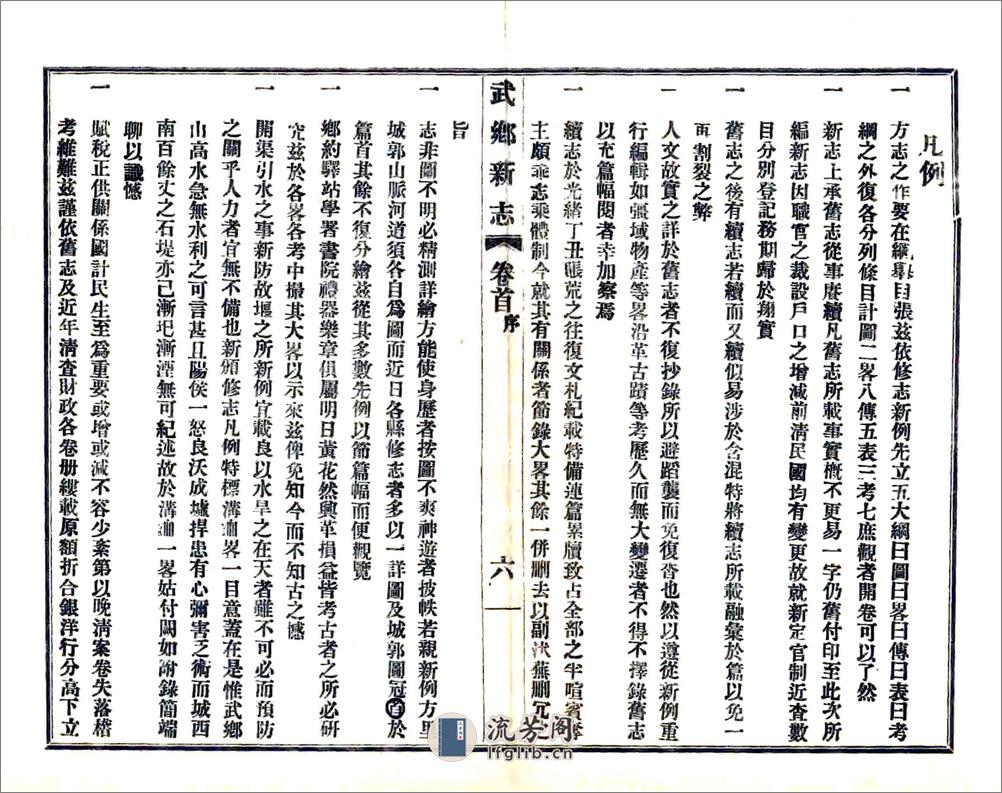 凡例
一 方志之作要在綱舉目張茲依修志新例先立五大綱曰圖曰畧曰傳曰表曰考
綱之外復各分列條目計圖二畧八傳五表三考七庶觀者開卷可以了然
一 新志上承舊志從事賡續凡舊志所載事實槪不更易一字仍舊付印至此次所
編新志因職官之裁設戶口之增減前淸民國均有變更故就新定官制近查數
目分別登記務期歸於翔實
一 舊志之後有續志若續而又續似易涉於含混特將續志所載融彙於篇以免一
再割裂之弊
一 人文故實之詳於舊志者不復抄錄所以避蹈襲而免復沓也然以遵從新例重
行編輯如彊域物產等畧沿革古蹟等考歷久而無大變遷者不得不擇錄舊志
以充篇幅閱者幸加察焉
一 續志於光緒丁丑賑荒之往復文札紀載特備連篇累牘致占全部之半喧賓奪
主頗乖志乘體制今就其有關係者節錄大畧其餘一併删去以副汰蕪删冗
旨
一 志非圖不明必精測詳繪方能使身歷者按圖不爽神遊者披帙若親新例方里
城郭山脈河道須各自爲圖而近日各縣修志者多以一詳圖及城郭圖冠首於
篇首其餘不復分繪茲從其多數先例以節篇幅而便觀覽
一 鄉約驛站學署書院禮器樂章俱屬明日黃花然興革損益皆考古者之所必硏
究茲於各畧各考中撮其大畧以示來茲俾免知今而不知古之憾
一 開渠引水之事新防故堰之所新例宜載良以水旱之在天者雖不可必而預防
之關乎人力者宜無不備也新頒修志凡例特標溝洫畧一目意蓋在是惟武鄉
山高水急無水利之可言甚且陽侯一怒良沃成墟捍患有心彌害乏術而城西
南百餘丈之石堤亦已漸圯漸湮無可紀述故於溝洫一畧姑付闕如附錄簡端
聊以識憾
一 賦稅正供關係國計民生至爲重要或增或減不容少紊第以晚淸案卷失落稽
考維難茲謹依舊志及近年淸查財政各卷册縷載原額折合銀洋行分高下立
武鄉新志 卷首 序 六
流芳阁
lfglib.com